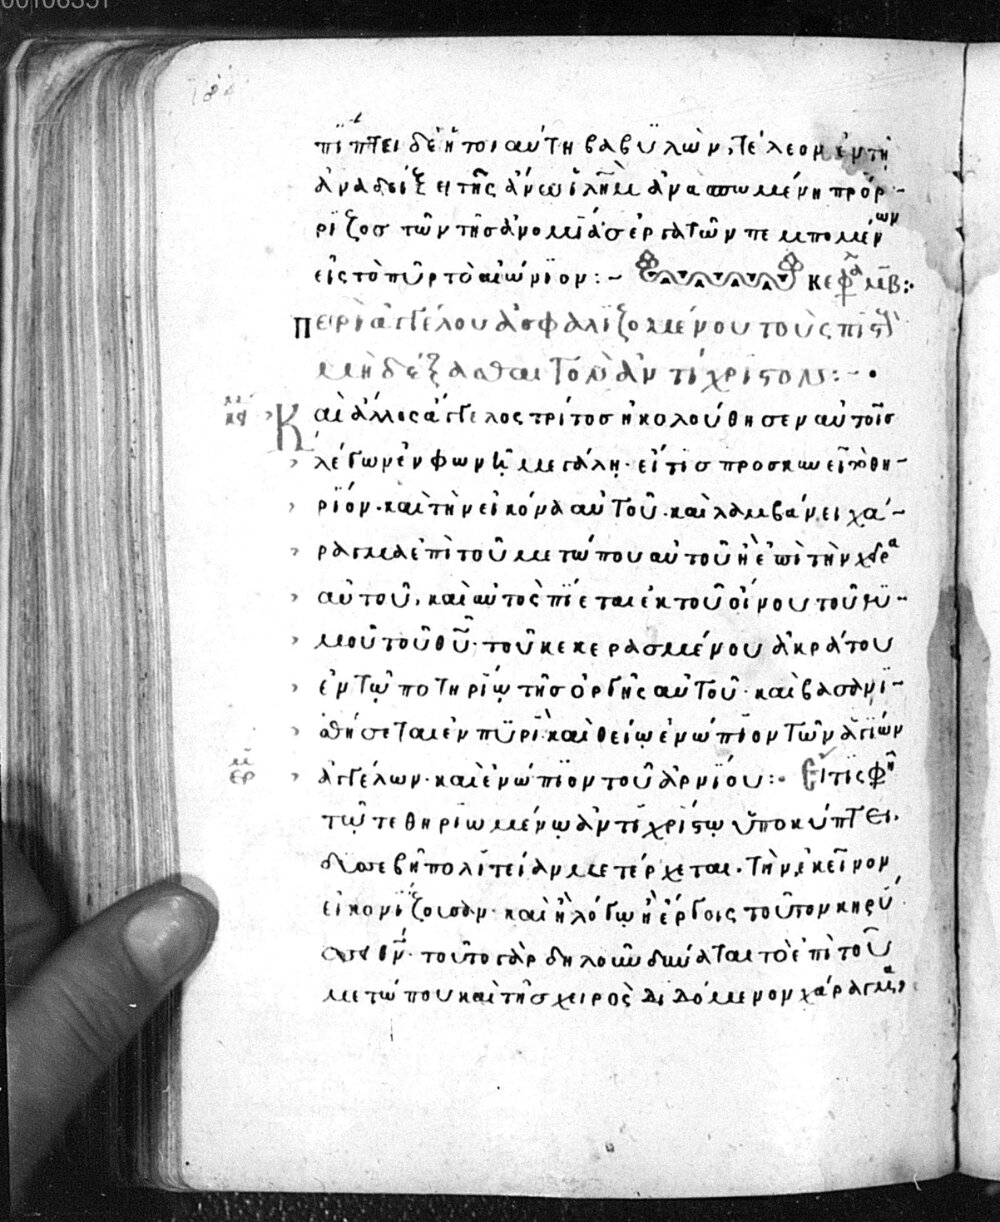 00106351
184
πίπτει δὲ ἤτοι αὐτη βαβϋλὼν, τέλεον ἐν τῆ
ἀναδείξει τῆς ἄνω ϊλῆμ ἀνασπωμένη πρόρ-
ριζος τῶν τῆς ἀνομίας ἐργατῶν πεμπομένων
εἰς τὸ πῦρ τὸ αἰώνϊον :~ κεφλ μβ :·
Περὶ ἀγγέλου ἀσφαλιζομένου τοὺς πιστ
μὴ δέξασθαι τὸν ἀντίχριστον :- ·
κείμ Καὶ ἄλλος ἄγγελος τρίτος ἠκολούθησεν αὐτοῖς
λέγων ἐν φωνῆ μεγάλη· εἴ τις προσκυνεῖ τὸ θη-
ρϊόν· καὶ τὴν εἰκόνα αὐτοῦ· καὶ λαμβάνει χά-
ραγμα ἐπὶ τοῦ μετώπου αὐτοῦ ἢ ἐπὶ τὴν χεῖρα
αὐτοῦ, καὶ αὐτὸς πίεται ἐκ τοῦ οἴνου τοῦ θϋ-
μοῦ τοῦ θυ· τοῦ κεκερασμένου ἀκράτου
ἐν τῷ ποτηρίῳ τῆς ὀργῆς αὐτοῦ· καὶ βασανϊ-
σθήσεται ἐν πϋρὶ καὶ θείῳ ἐνώπϊον τῶν ἁγίων
ἑρμ ἀγγέλων· καὶ ἐνώπϊον τοῦ ἀρνϊου :· Εἴ τίς φη
τῷ τε θηρίω μένῳ ἀντιχρίστῳ ὑποκύπτει,
πολιτείαν μετέρχεται· τὴν ἐκεῖνον
εἰκονίζουσαν· καὶ ἢ λόγῳ ἢ ἔργοις τοῦτον κηρύ
θν· τοῦτο γὰρ δηλοῦν δύναται τὸ ἐπὶ τοῦ
μετώπου καὶ τῆς χειρὸς διδόμενον χάραγμα,